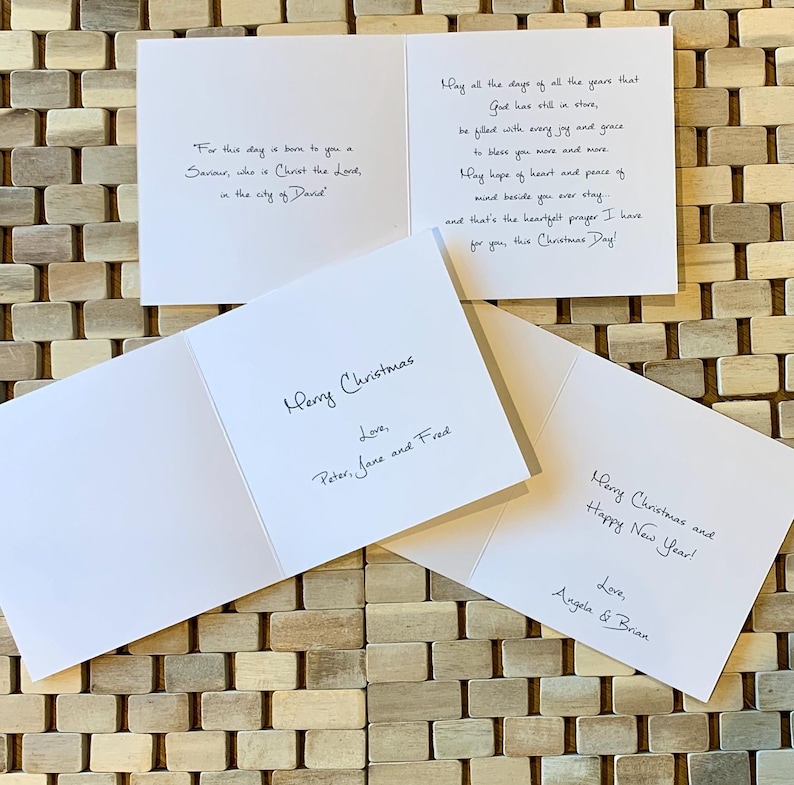 "For this day is born to you a
Saviour, who is Christ the Lord,
in the city of David"
May all the days of all the years that
God has still in store,
be filled with every joy and grace
to bless you more and more.
May hope of heart and peace of
mind beside you ever stay...
and that's the heartfelt prayer I have
for you, this Christmas Day!
Merry Christmas
Love,
Peter, Jane and Fred
Merry Christmas and
Happy New Year!
Love,
Angela & Brian